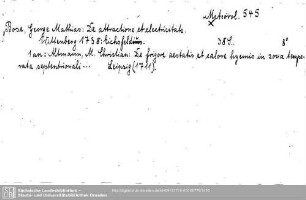 Meteorol. 545
Bose, George Mathias: De attractione et electricitate.
Wittenberg 1738: Eichsfeld. 38 S. 8°
1 an: Altmann, M. Christian: De frigore aestatis et calore hyemis in zona tempe-
rata septentrionali... Leipzig (1711).
Sächsische Landesbibliothek -
Staats- und Universitätsbibliothek Dresden